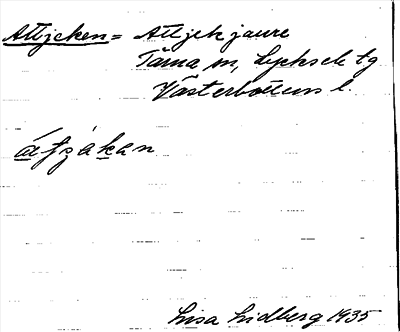 Attjeken = Attjekjaure
Tärna sn, Lycksele tg
Västerbottens l.
átjákan
Lisa Lidberg 1935